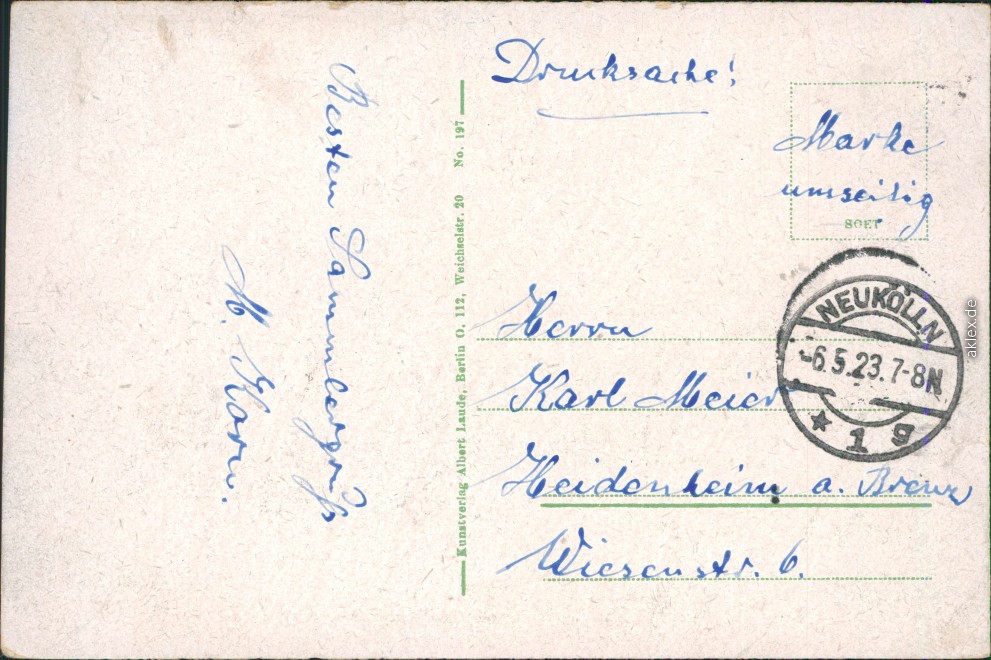 Besten Sammlergruß
Kunstverlag Albert Laude, Berlin O. 112, Weichselstr. 20 No. 197
Drucksache!
Marke
umseitig
NEUKÖLLN
-6.5.23.7-8N
* 1 g
Herrn
Karl Meier
Heidenheim a. Brenz
Wiesenstr. 6.
aklex.de